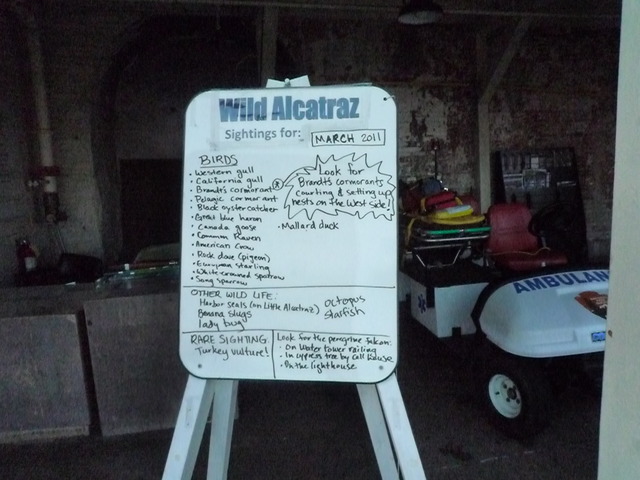 Wild Alcatraz
Sightings for: MARCH 2011
BIRDS
• Western gull
• California gull
• Brandt's cormorant
• Pelagic cormorant
• Black oystercatcher
• Great blue heron
• Canada goose
• Common Raven
• American Crow
• Rock dove (pigeon)
• European starling
• White-crowned sparrow
• Song sparrow
Look for
Brandt's cormorants
courting & setting up
nests on the West side!
• Mallard duck
OTHER WILD LIFE:
Harbor seals (on Little Alcatraz)
Banana slugs
lady bug
Octopus
Starfish
RARE SIGHTING
Turkey vulture!
Look for the peregrine falcon:
• On Water tower railing
• In cypress tree by cell house
• On the lighthouse
AMBULAN